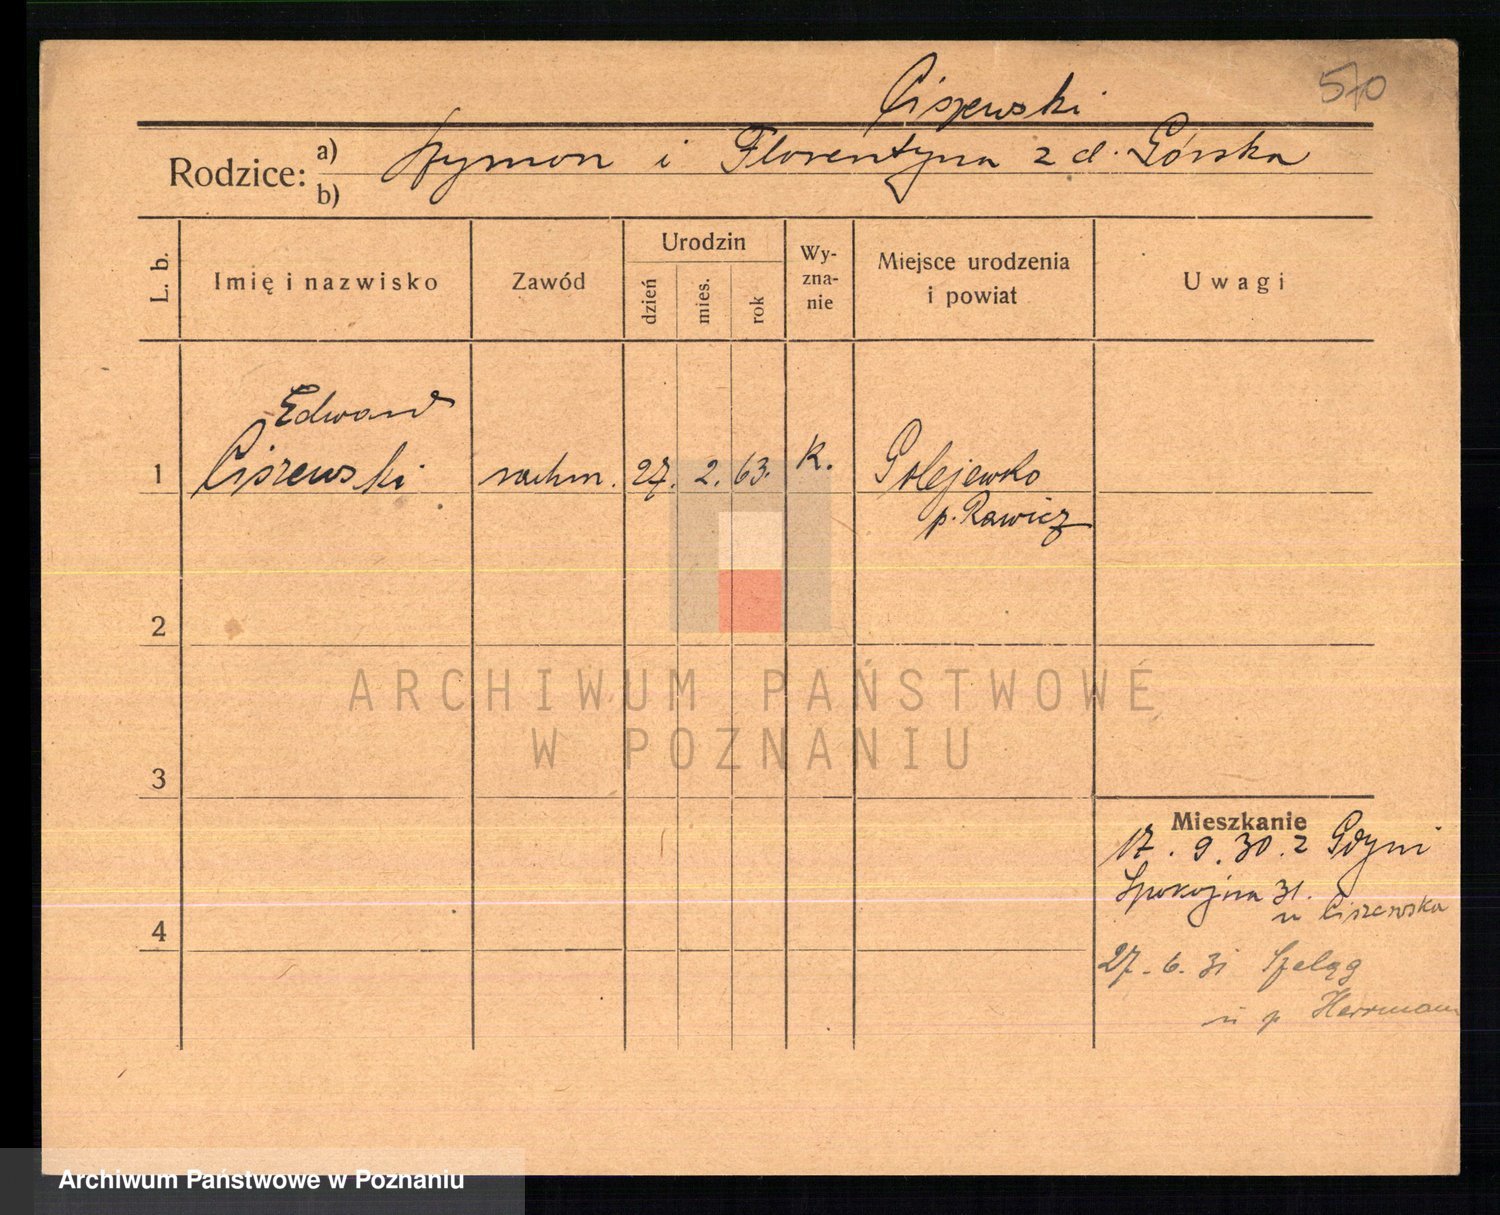 570
Ciszewski
Rodzice: a) Szymon i Florentyna z d. Górska
b)
L. b.
Imię i nazwisko
Zawód
Urodzin
dzień
mies.
rok
Wy-
zna-
nie
Miejsce urodzenia
i powiat
Uwagi
Edward
1 Ciszewski rachm. 27. 2. 63. K. Golejewko
p. Rawicz
2
ARCHIWUM PAŃSTWOWE
W POZNANIU
3
Mieszkanie
17. 9. 30. z Gdyni
Spokojna 31.
u Ciszewska
4
27. 6. 31 Szeląg
u p Herrmann
Archiwum Państwowe w Poznaniu